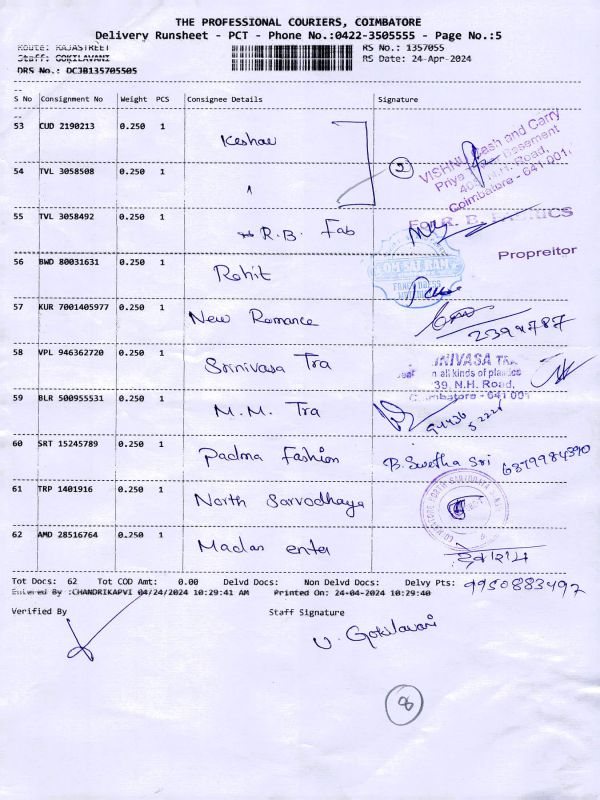 THE PROFESSIONAL COURIERS, COIMBATORE
Delivery Runsheet - PCT - Phone No.:0422-3505555 - Page No.:5
Route: RAJASTREET
RS No.: 1357055
Staff: GOKILAVANI
RS Date: 24-Apr-2024
DRS No.: DCJB135705505
S No Consignment No Weight PCS Consignee Details Signature
53 CUD 2190213 0.250 1 Keshav
VISHNU Cash and Carry
Priya Basement
N.H. Road,
Coimbatore - 641 001.
2
54 TVL 3058508 0.250 1 "
55 TVL 3058492 0.250 1 R.B. Fab
For R. B. FABRICS
Propreitor
56 BWD 80031631 0.250 1 Rohit
OM SAI RAM
57 KUR 7001405977 0.250 1 New Romance
58 VPL 946362720 0.250 1 Srinivasa Tra
SRINIVASA TRA
in all kinds of plastics
39, N.H. Road,
Coimbatore - 641 001
59 BLR 500955531 0.250 1 M.M. Tra
60 SRT 15245789 0.250 1 Padma Fashion B. Swetha Sri
61 TRP 1401916 0.250 1 North Sarvodhaya
62 AMD 28516764 0.250 1 Madan enter
Tot Docs: 62 Tot COD Amt: 0.00 Delvd Docs: Non Delvd Docs: Delvy Pts:
9950883497
Entered By :CHANDRIKAPVI 04/24/2024 10:29:41 AM Printed On: 24-04-2024 10:29:40
Verified By Staff Signature
V. Gokilavani
8